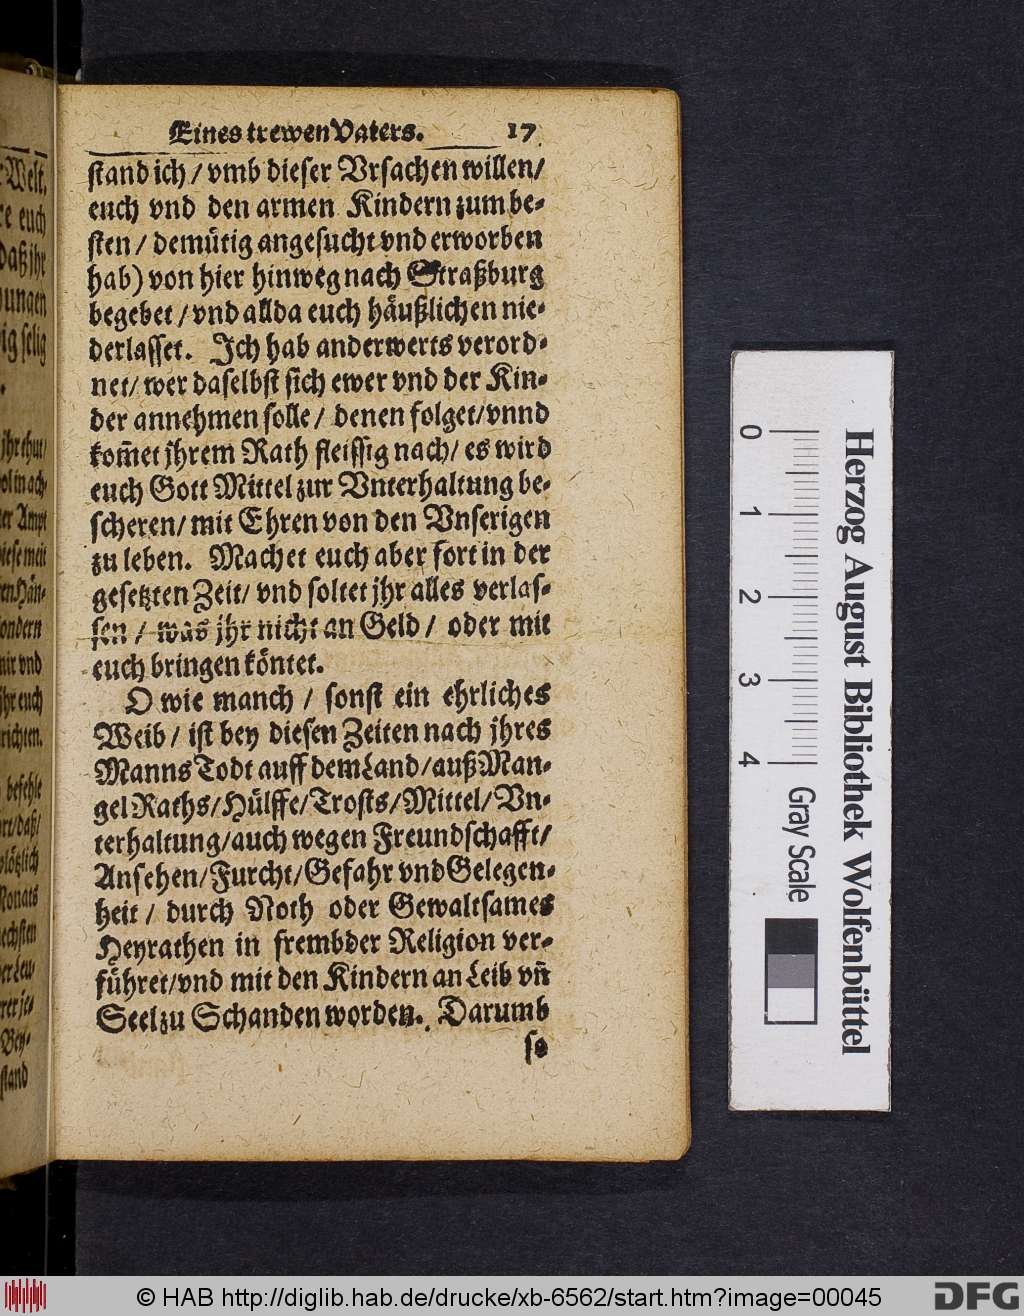 Eines trewen Vaters. 17
stand ich / vmb dieser Vrsachen willen/
euch vnd den armen Kindern zum be-
sten / demütig angesucht vnd erworben
hab) von hier hinweg nach Straßburg
begebet / vnd allda euch häußlichen nie-
derlasset. Ich hab anderwerts verord-
net/ wer daselbst sich ewer vnd der Kin-
der annehmen solle / denen folget/vnnd
kom̃et jhrem Rath fleissig nach/ es wird
euch Gott Mittel zur Vnterhaltung be-
scheren/ mit Ehren von den Vnserigen
zu leben. Machet euch aber fort in der
gesetzten Zeit/ vnd soltet jhr alles verlas-
sen / was jhr nicht an Geld / oder mit
euch bringen köntet.
O wie manch / sonst ein ehrliches
Weib / ist bey diesen Zeiten nach jhres
Manns Todt auff dem Land/auß Man-
gel Raths/Hülffe/Trosts/Mittel/Vn-
terhaltung/auch wegen Freundschafft/
Ansehen/Furcht/Gefahr vnd Gelegen-
heit / durch Noth oder Gewaltsames
Heyrathen in frembder Religion ver-
führet/vnd mit den Kindern an Leib vñ
Seel zu Schanden worden. Darumb
so
Welt,
euch
daß jhr
selig
jhr thut/
Ampt
Hän-
sondern
mir vnd
jhr euch
richten.
befehle
Monats
stand
0 1 2 3 4
Gray Scale
Herzog August Bibliothek Wolfenbüttel
© HAB http://diglib.hab.de/drucke/xb-6562/start.htm?image=00045
DFG